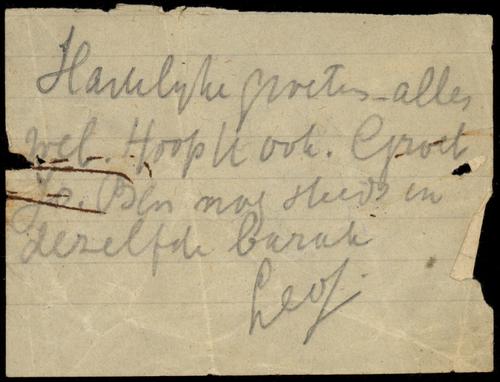 Hartelijke groeten - alles
wel. Hoop U ook. Groet
Jo. Ben nog steeds in
dezelfde barak
Leo